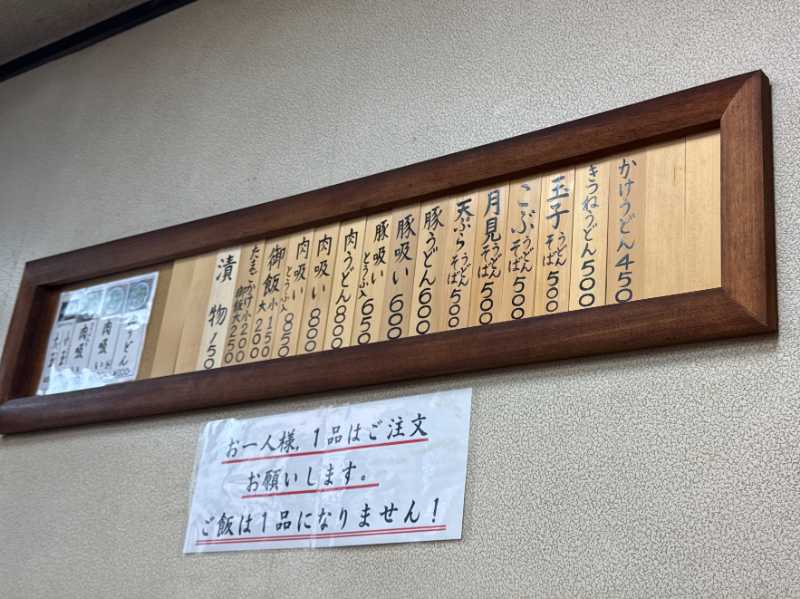 かけうどん 450
きつねうどん 500
玉子 うどん そば 500
こぶ うどん そば 500
月見 うどん そば 500
天ぷら うどん そば 500
豚うどん 600
豚吸い 600
豚吸い とうふ入 650
肉うどん 800
肉吸い 800
肉吸い とうふ入 850
御飯 小 150 大 200
たまごかけ小 200 御飯大 250
漬物 150
うどん
肉吸い
肉吸い
お一人様，1品はご注文
お願いします。
ご飯は1品になりません！